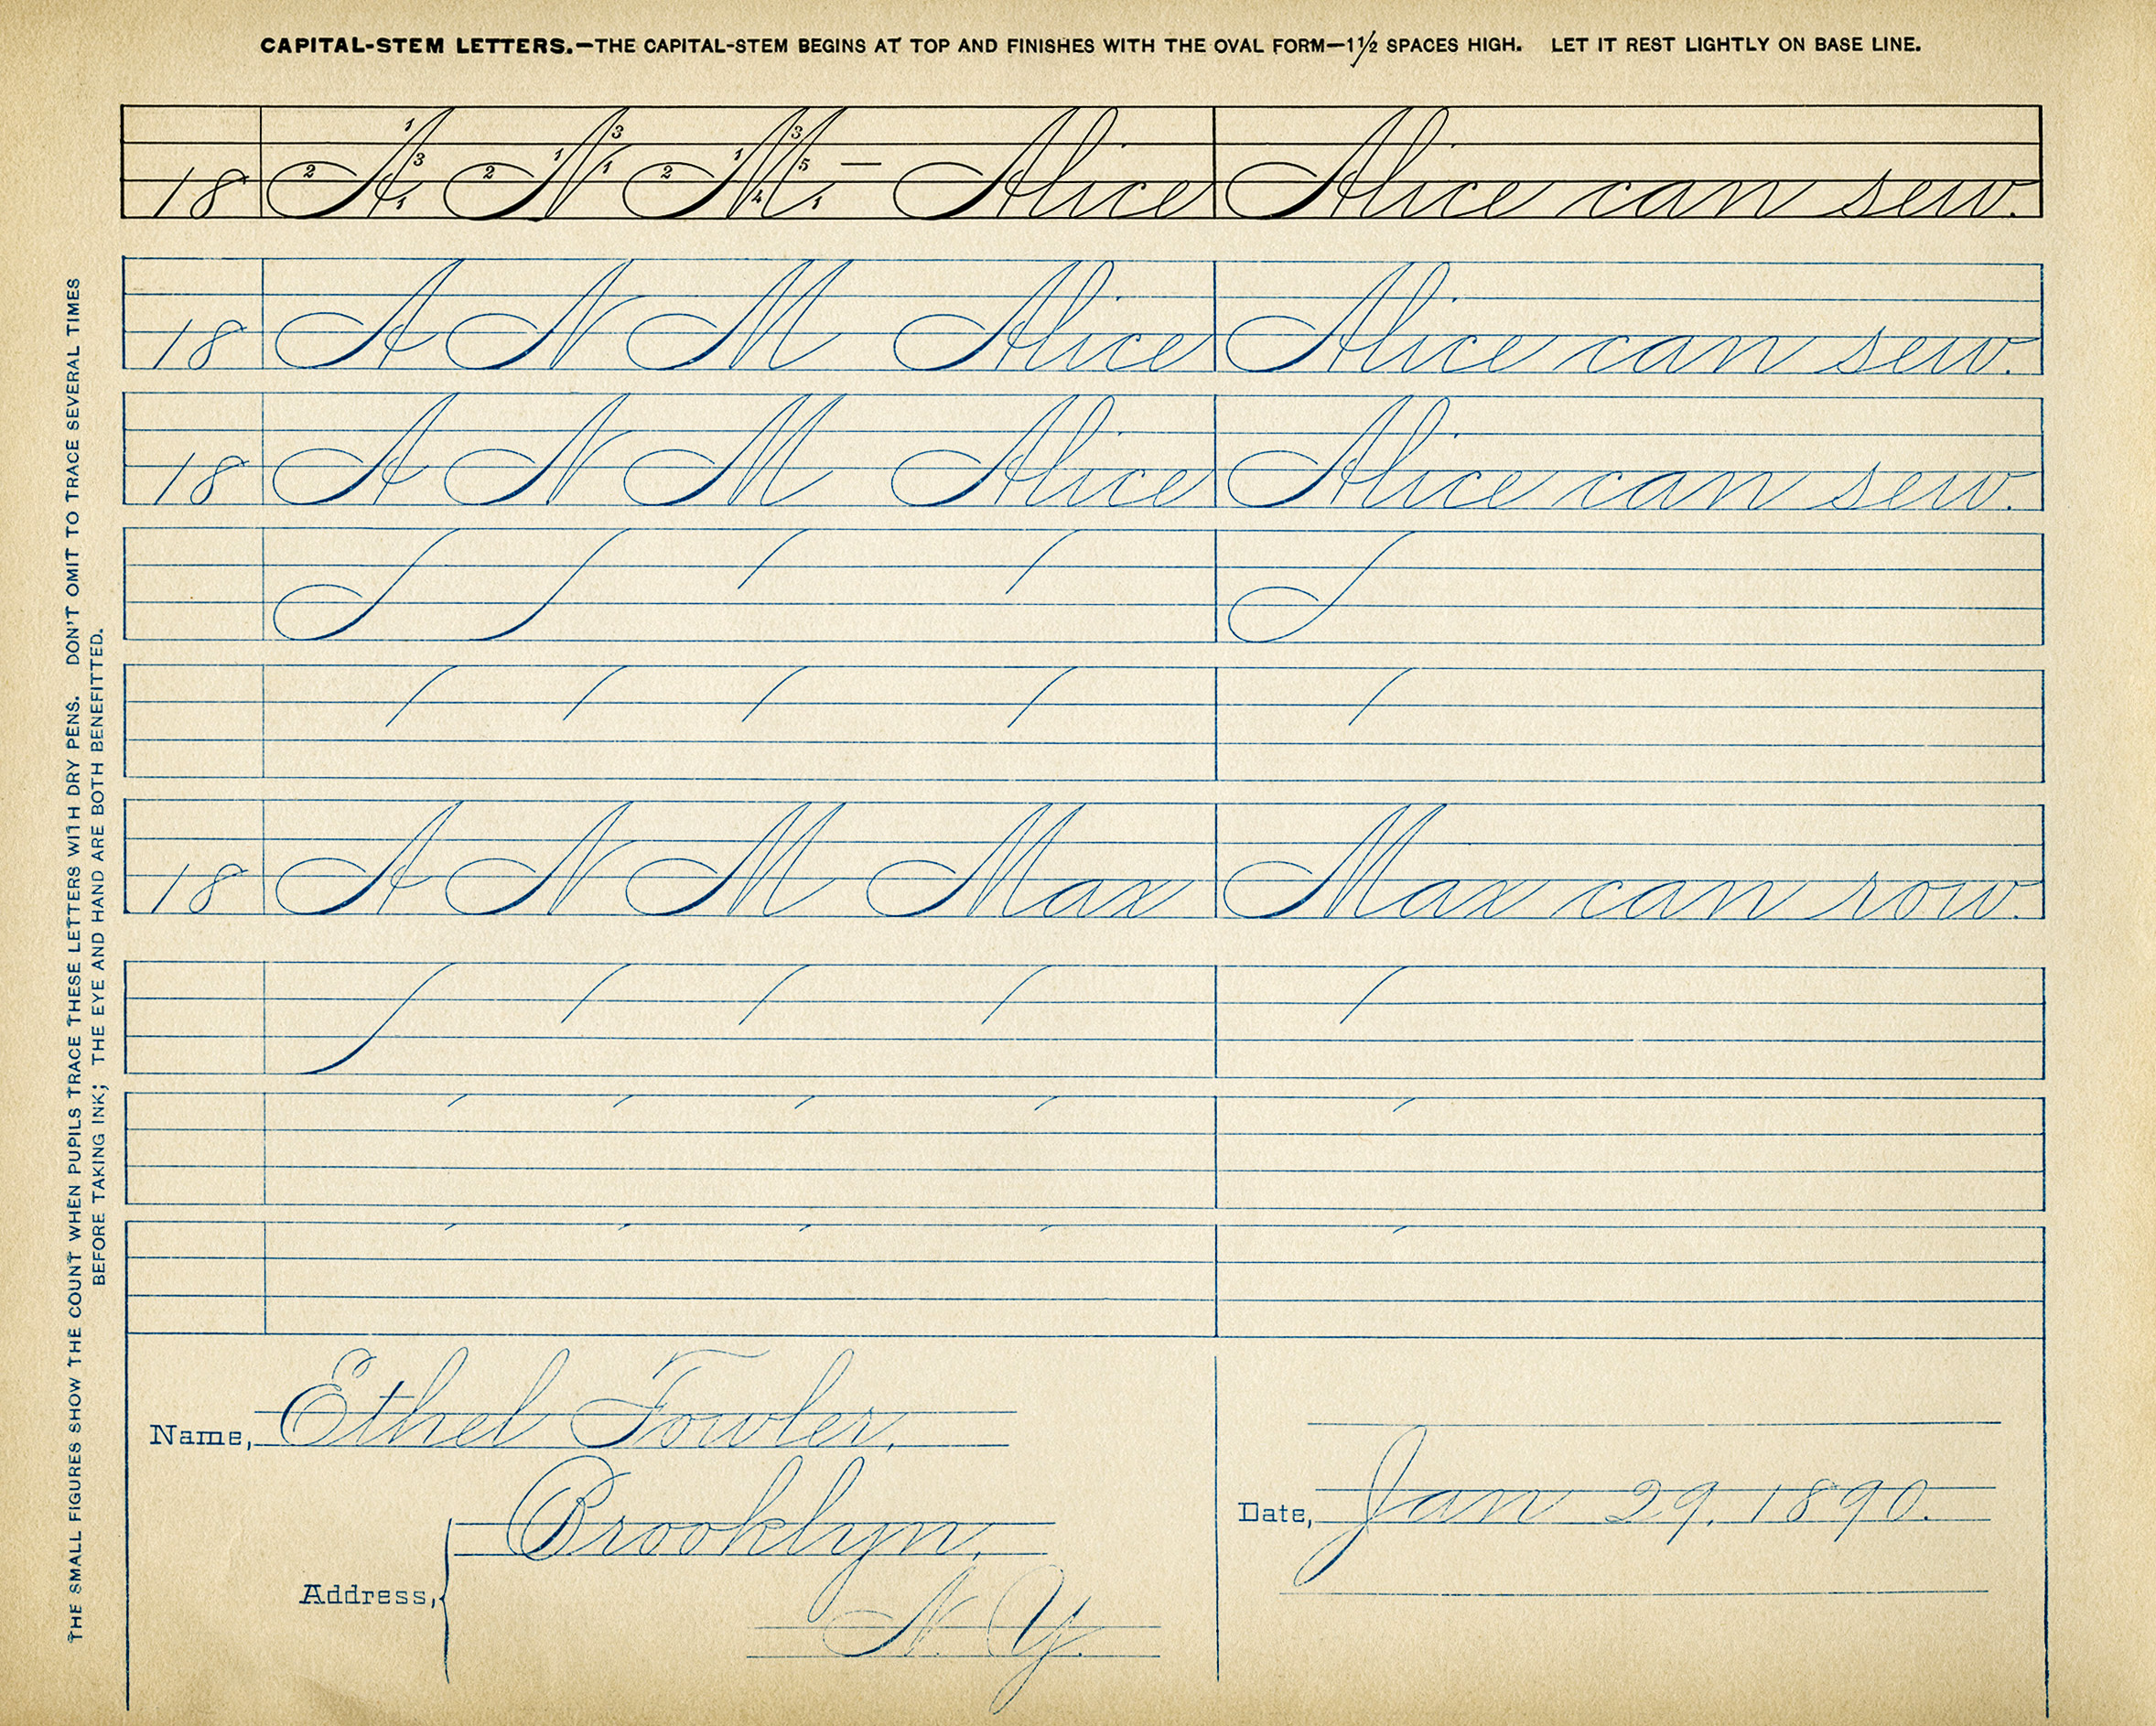 CAPITAL-STEM LETTERS.—THE CAPITAL-STEM BEGINS AT TOP AND FINISHES WITH THE OVAL FORM—1½ SPACES HIGH. LET IT REST LIGHTLY ON BASE LINE.
18 A N M — Alice Alice can sew.
18 A N M Alice Alice can sew.
18 A N M Alice Alice can sew.
18 A N M Max Max can row.
Name, Ethel Fowler,
Address, Brooklyn,
N. Y.
Date, Jan 29, 1890.
THE SMALL FIGURES SHOW THE COUNT WHEN PUPILS TRACE THESE LETTERS WITH DRY PENS. DON'T OMIT TO TRACE SEVERAL TIMES
BEFORE TAKING INK; THE EYE AND HAND ARE BOTH BENEFITTED.